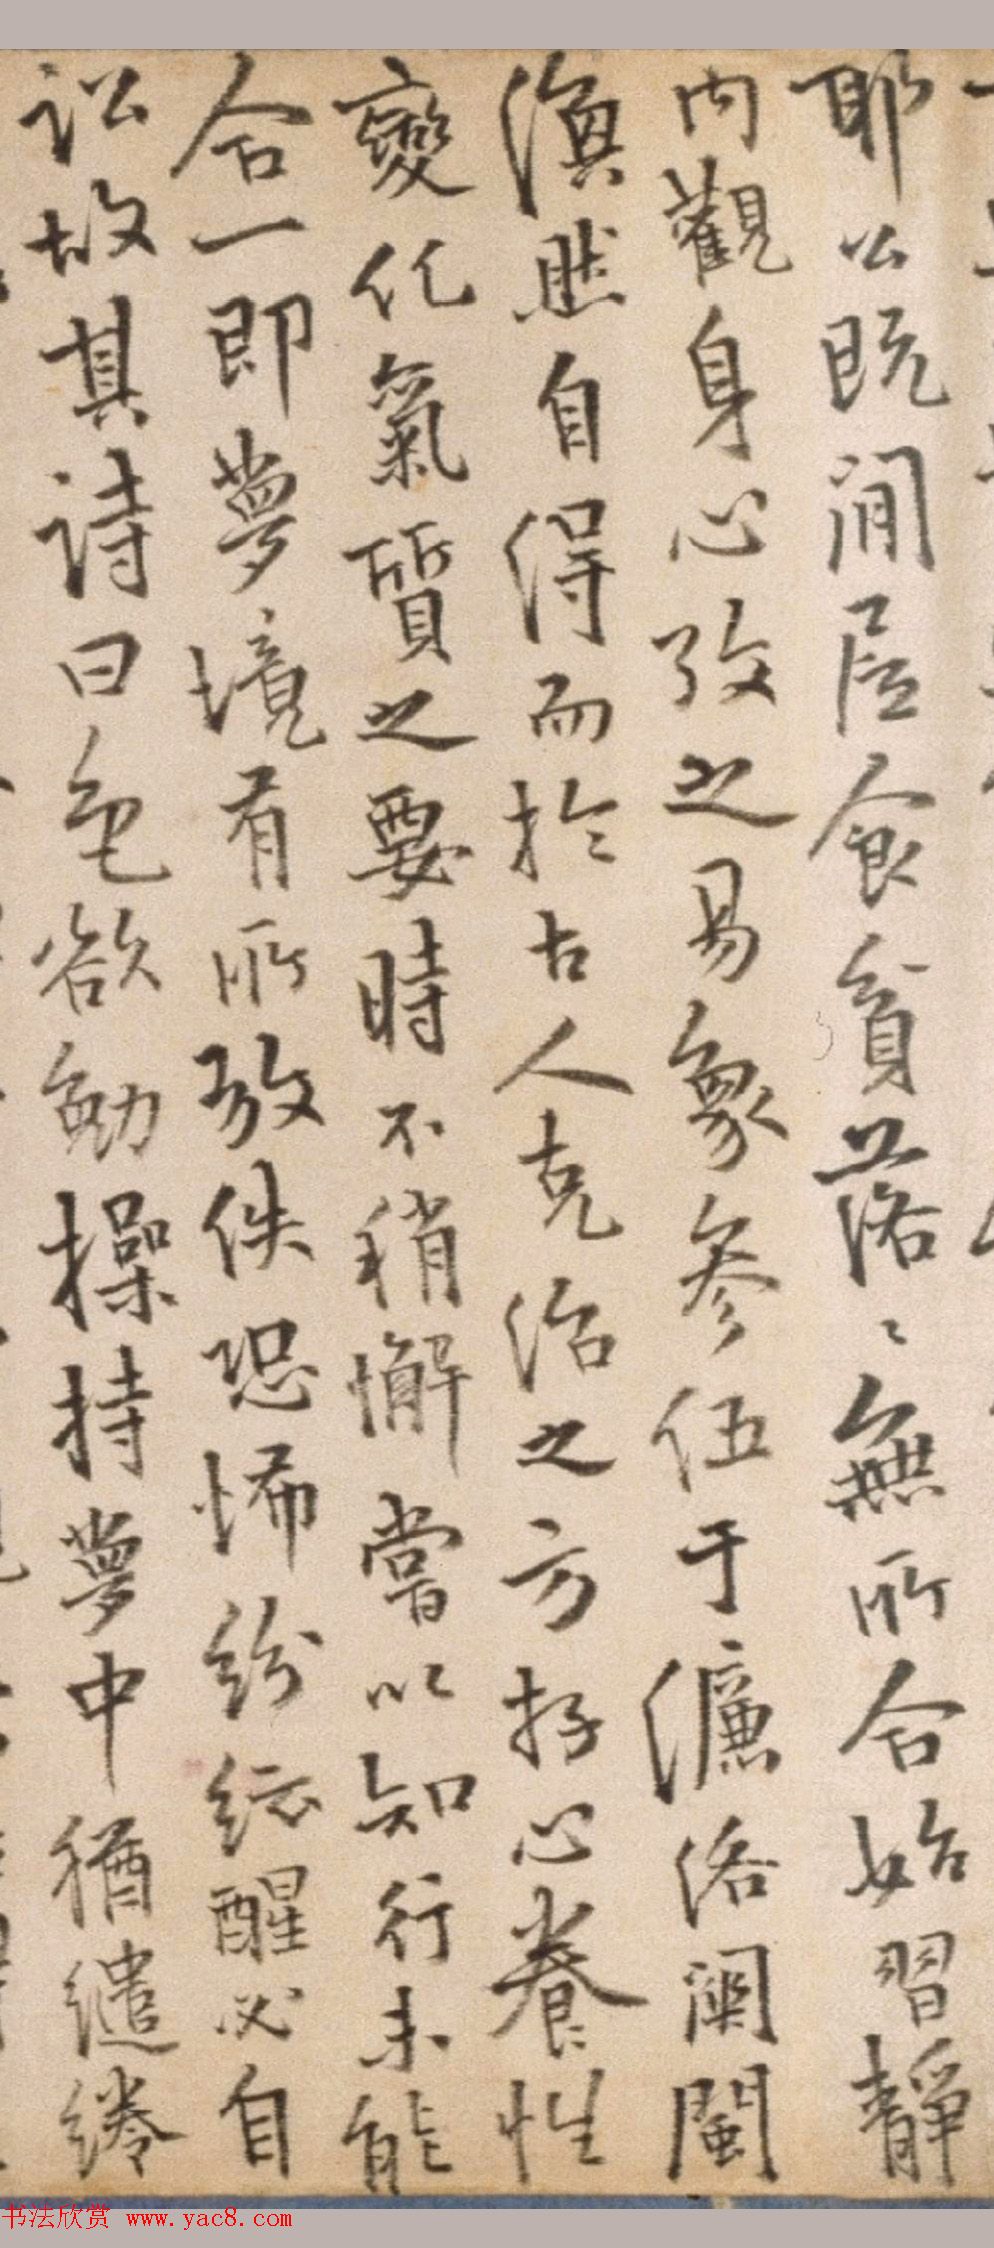 耶公既閒居食貧落〻無所合始習靜
内觀身心攷之易象參伍于濂洛關閩
渙然自得而於古人克治之方存心養性
變化氣質之要時不稍懈嘗以知行未能
合一即夢境有所放佚恐怖紛紜醒必自
訟故其詩曰色欲勉操持夢中猶繾綣
书法欣赏 www.yac8.com